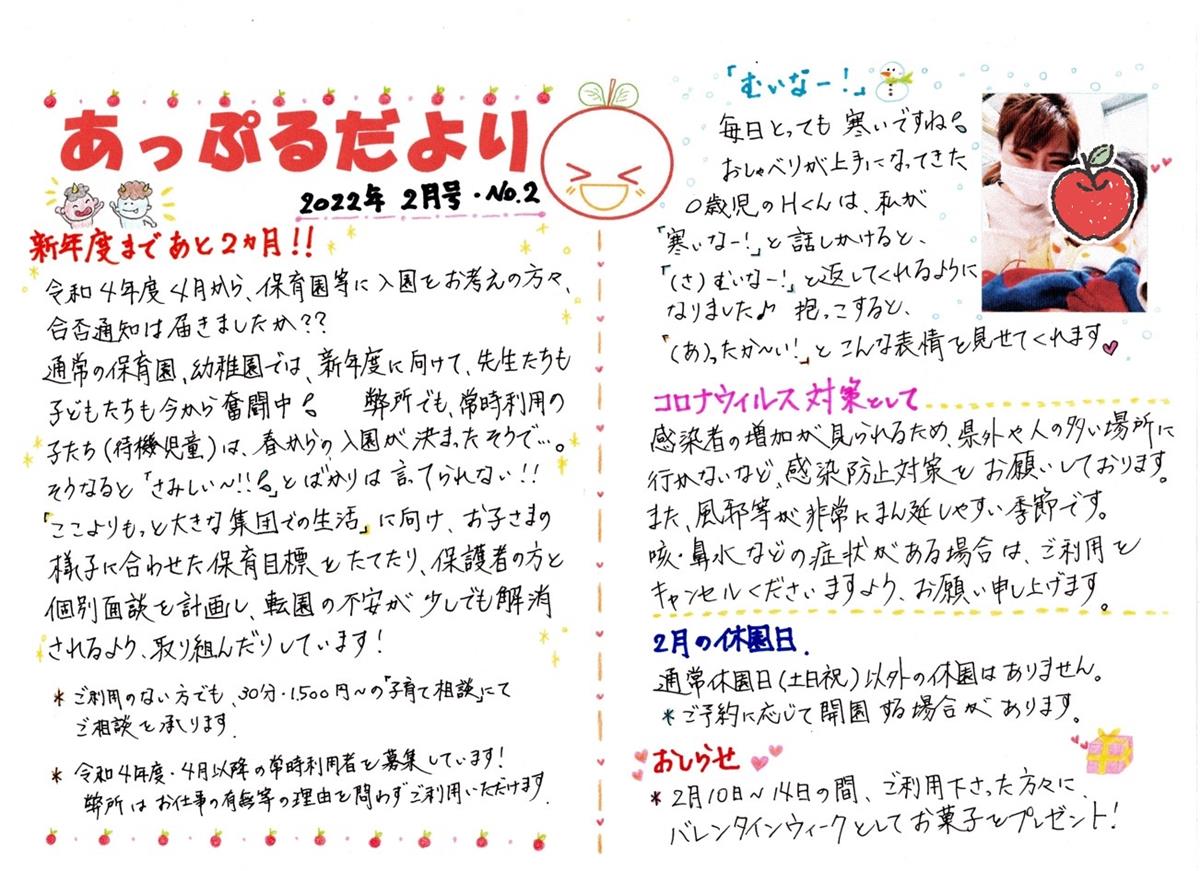 あっぷるだより
2022年 2月号・No.2
新年度まであと2ヵ月!!
令和4年度4月から、保育園等に入園をお考えの方々、
合否通知は届きましたか??
通常の保育園、幼稚園では、新年度に向けて、先生たちも
子どもたちも今から奮闘中! 弊所でも、常時利用の
子たち(待機児童)は、春からの入園が決まったそうで…。
そうなると「さみしい〜!!」とばかりは言ってられない!!
「ここよりもっと大きな集団での生活」に向け、お子さまの
様子に合わせた保育目標をたてたり、保護者の方と
個別面談を計画し、転園の不安が少しでも解消
されるよう、取り組んだりしています!
* ご利用のない方でも、30分・1,500円〜の「子育て相談」にて
ご相談を承ります.
* 令和4年度・4月以降の常時利用者を募集しています!
弊所はお仕事の有無等の理由を問わずご利用いただけます.
「むいなー!」
毎日とっても寒いですね!
おしゃべりが上手になってきた
0歳児のHくんは、私が
「寒いなー!」と話しかけると、
「(さ)むいなー!」と返してくれるように
なりました♪ 抱っこすると、
「(あ)ったか〜い!」とこんな表情を見せてくれます
コロナウィルス対策として
感染者の増加が見られるため、県外や人の多い場所に
行かないなど、感染防止対策をお願いしております。
また、風邪等が非常にまん延しやすい季節です。
咳・鼻水などの症状がある場合は、ご利用を
キャンセルくださいますよう、お願い申し上げます。
2月の休園日.
通常休園日(土日祝)以外の休園はありません。
* ご予約に応じて開園する場合があります。
おしらせ
* 2月10日〜14日の間、ご利用下さった方々に、
バレンタインウィークとしてお菓子をプレゼント!